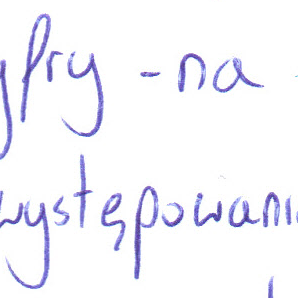 yfry - na
występowani